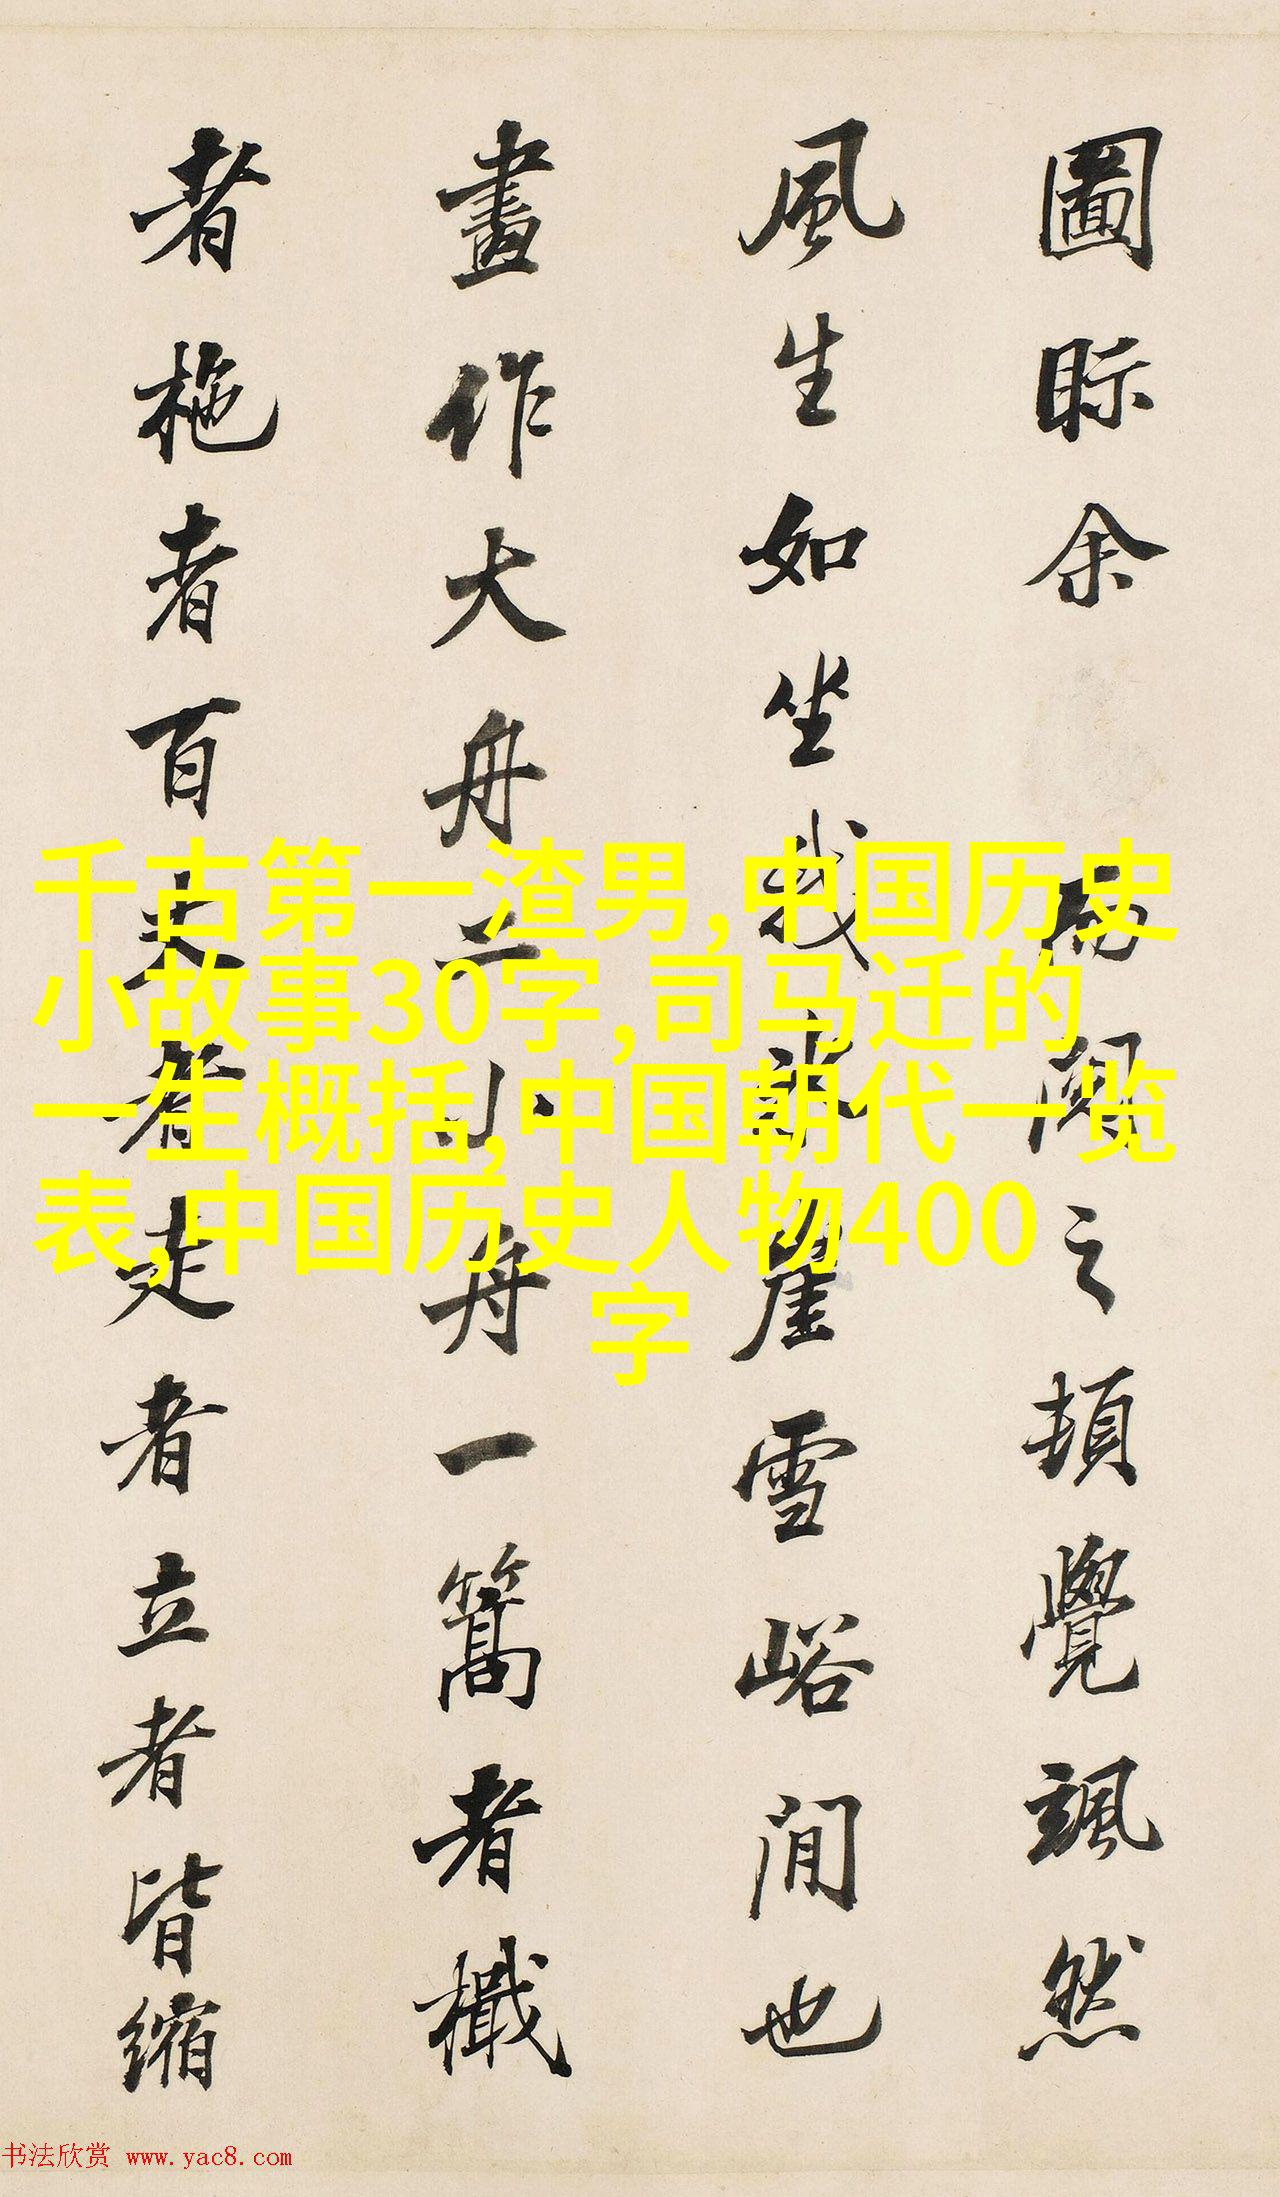 圖眎余 而閱之頓覺颯然
風生如坐我冰崖雪峪間也
畫作大舟二小舟一篙者檝
者柂者百丈者走者立者皆縮
千古第一渣男,中国历史
小故事30字,司马迁的
一生概括,中国朝代一览
表,中国历史人物400
字
书法欣赏 www.yac8.com